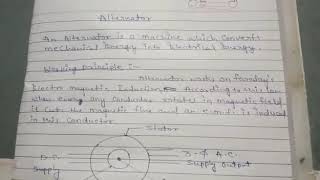 Alternator
An Alternator is a machine which converts
mechanical Energy into Electrical Energy.
Working Principle :-
Alternator works on faraday's
Electro magnetic Induction. According to this law
when any conductor rotates in magnetic field
it cuts the magnetic flux and an e.m.f. is induced
in this Conductor.
Stator
D.C. 3-ϕ A.C.
Supply Supply output